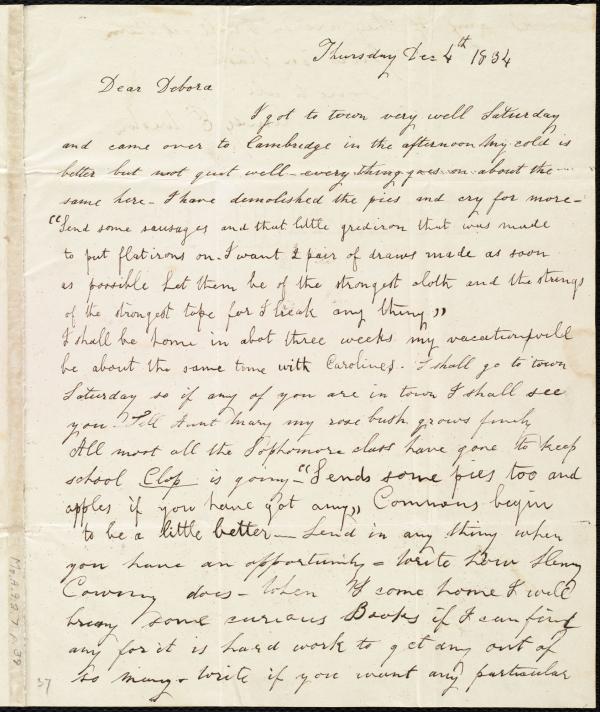 Thursday Dec 4th 1834
Dear Debora
I got to town very well Saturday
and came over to Cambridge in the afternoon My cold is
better but not quit well - every thing goes on about the
same here - I have demolished the pies and cry for more -
"Send some sausages and that little grediron that was made
to put flatirons on. I want 2 pair of draws made as soon
as possible Let them be of the strongest cloth and the strings
of the strongest tape for I break any thing"
I shall be home in abot three weeks my vacation will
be about the same time with Carolines. I shall go to town
Saturday so if any of you are in town I shall see
you. Tell Aunt Mary my rose bush grows finely
All most all the Sophomore class have gone to keep
school Clap is going - "Sends some pies too and
apples if you have got any" Commons begin
to be a little better - Send in any thing when
you have an opportunity - Write how Henry
Cowing does - When I come home I will
bring some curious Books if I can find
any for it is hard work to get any out of
so many - Write if you want any particular
Ms.A.9.2.7 p.39
37